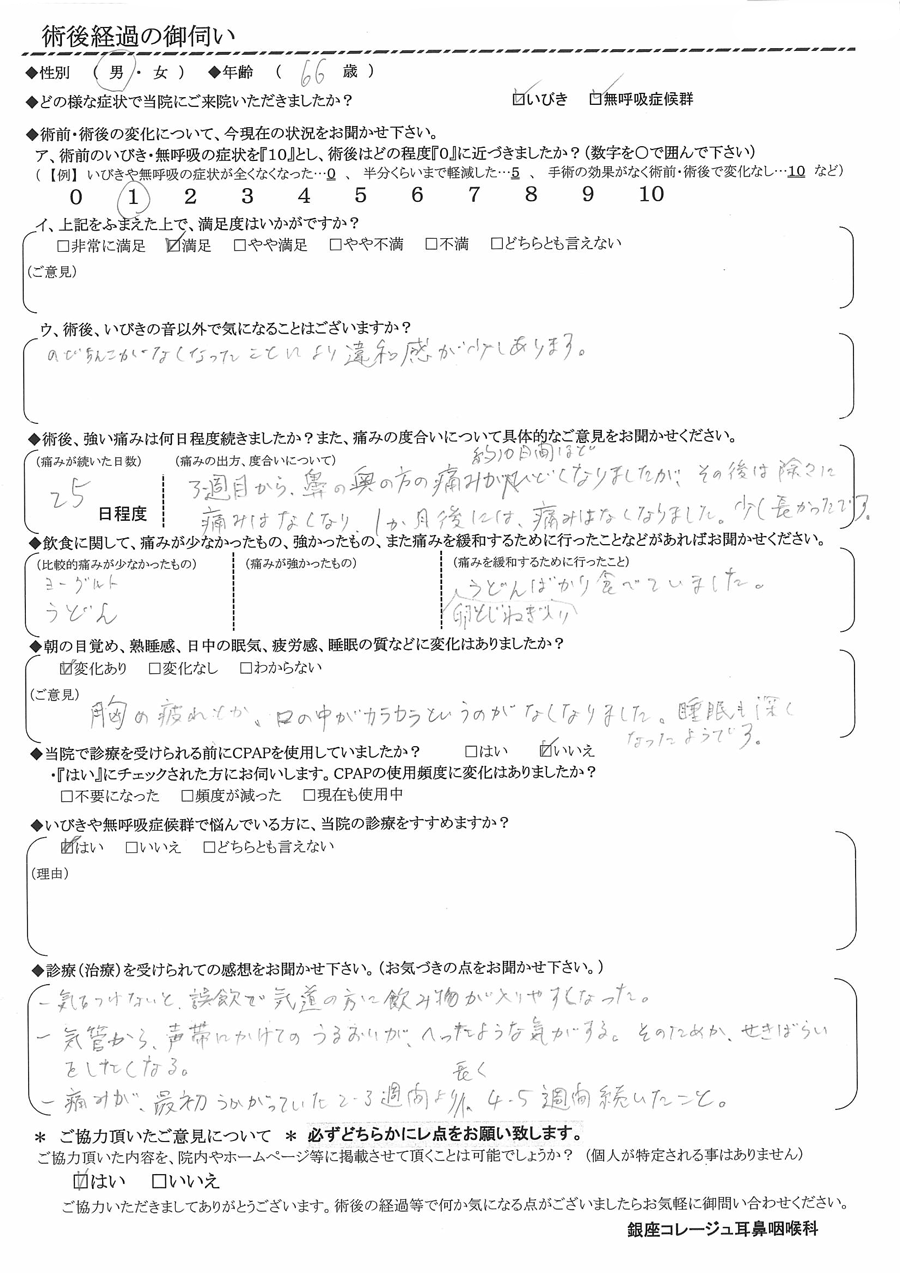 術後経過の御伺い
◆性別 （ 男 ・ 女 ） ◆年齢 （ 66 歳 ）
◆どの様な症状で当院にご来院いただきましたか？ ☑いびき ☑無呼吸症候群
◆術前・術後の変化について、今現在の状況をお聞かせ下さい。
ア、術前のいびき・無呼吸の症状を『10』とし、術後はどの程度『0』に近づきましたか？（数字を〇で囲んで下さい）
（ 【例】 いびきや無呼吸の症状が全くなくなった…0 、 半分くらいまで軽減した…5 、 手術の効果がなく術前・術後で変化なし…10 など）
0 1 2 3 4 5 6 7 8 9 10
イ、上記をふまえた上で、満足度はいかがですか？
□非常に満足 ☑満足 □やや満足 □やや不満 □不満 □どちらとも言えない
（ご意見）
ウ、術後、いびきの音以外で気になることはございますか？
のどちんこがなくなったことにより違和感が少しあります。
◆術後、強い痛みは何日程度続きましたか？また、痛みの度合いについて具体的なご意見をお聞かせください。
（痛みが続いた日数） （痛みの出方、度合いについて） 約10日間ほど
25 日程度 3週目から、鼻の奥の方の痛みがひどくなりましたが、その後は除々に
痛みはなくなり、1か月後には、痛みはなくなりました。少し長かったです。
◆飲食に関して、痛みが少なかったもの、強かったもの、また痛みを緩和するために行ったことなどがあればお聞かせください。
（比較的痛みが少なかったもの） （痛みが強かったもの） （痛みを緩和するために行ったこと）
ヨーグルト うどんばかり食べていました。
うどん 卵とじねぎ入り
◆朝の目覚め、熟睡感、日中の眠気、疲労感、睡眠の質などに変化はありましたか？
☑変化あり □変化なし □わからない
（ご意見）
胸の疲れとか、口の中がカラカラというのがなくなりました。睡眠も深く
なったようです。
◆当院で診療を受けられる前にCPAPを使用していましたか？ □はい ☑いいえ
・『はい』にチェックされた方にお伺いします。CPAPの使用頻度に変化はありましたか？
□不要になった □頻度が減った □現在も使用中
◆いびきや無呼吸症候群で悩んでいる方に、当院の診療をすすめますか？
☑はい □いいえ □どちらとも言えない
（理由）
◆診療（治療）を受けられての感想をお聞かせ下さい。（お気づきの点をお聞かせ下さい。）
- 気をつけないと、誤飲で気道の方に飲み物が入りやすくなった。
- 気管から、声帯にかけてのうるおいが、へったような気がする。そのためか、せきばらい
をしたくなる。
- 痛みが、最初うかがっていた2-3週間より長く、4-5週間続いたこと。
＊ ご協力頂いたご意見について ＊ 必ずどちらかにレ点をお願い致します。
ご協力頂いた内容を、院内やホームページ等に掲載させて頂くことは可能でしょうか？ （個人が特定される事はありません）
☑はい □いいえ
ご協力いただきましてありがとうございます。術後の経過等で何か気になる点がございましたらお気軽に御問い合わせください。
銀座コレージュ耳鼻咽喉科